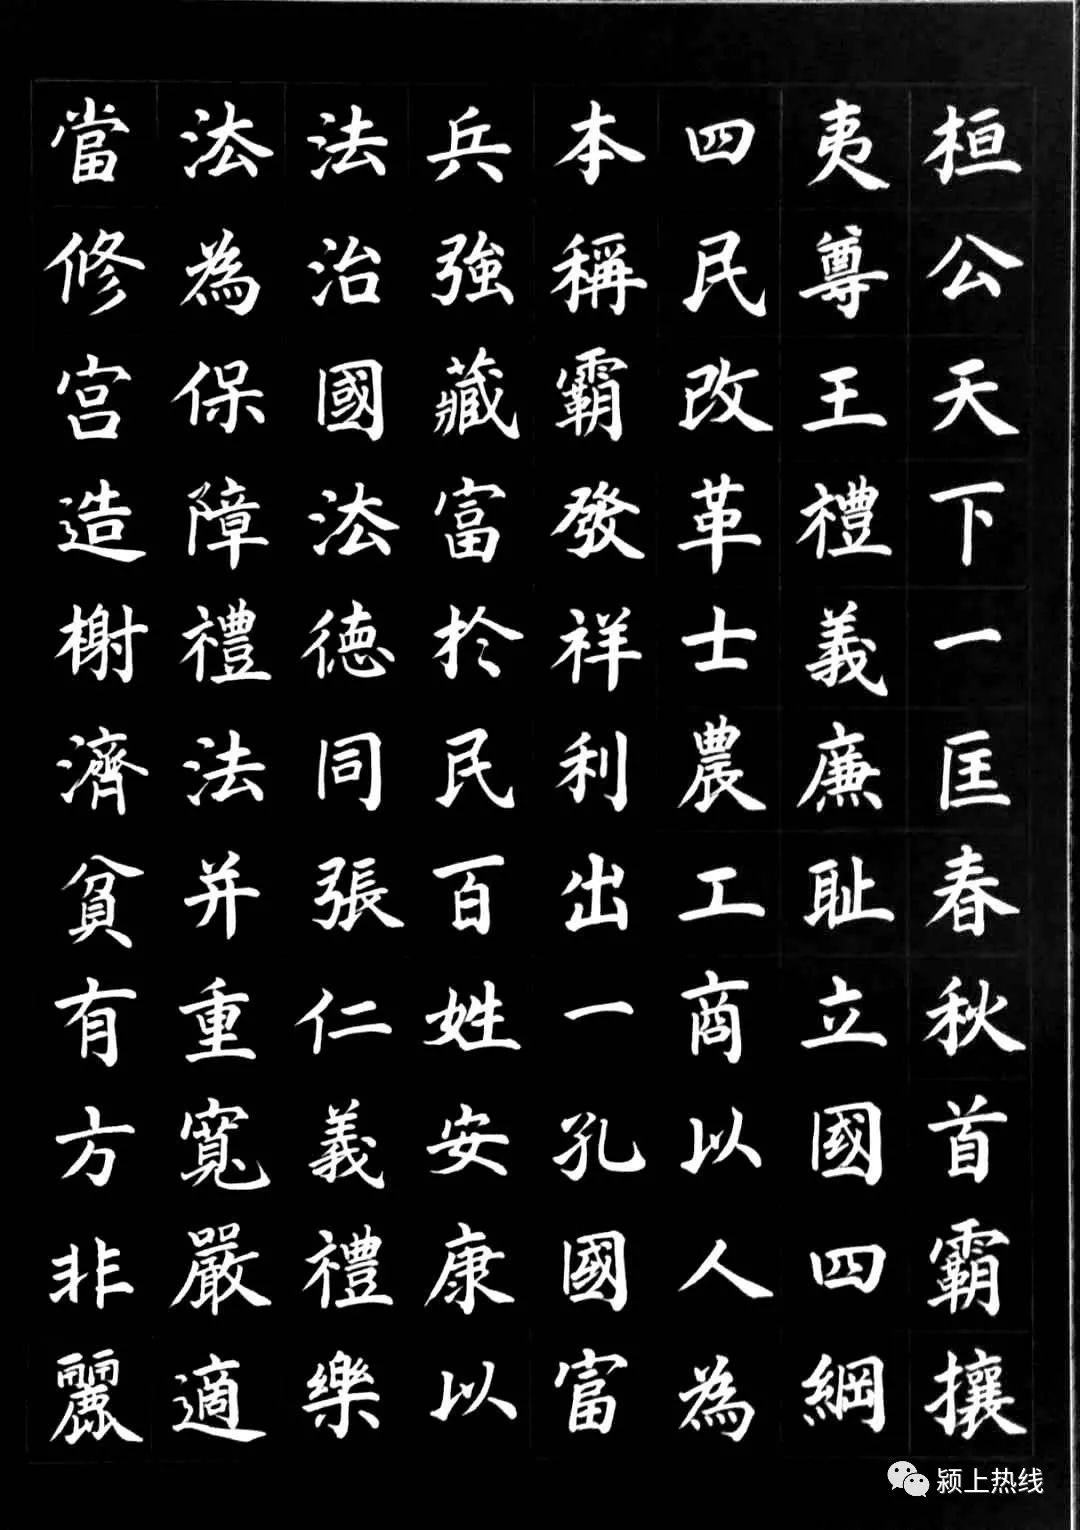 桓公天下一匡春秋首霸攘
夷尊王禮義廉耻立國四綱
四民改革士農工商以人為
本稱霸發祥利出一孔國富
兵強藏富於民百姓安康以
法治國法德同張仁義禮樂
法為保障禮法并重寬嚴適
當修宮造榭濟貧有方非麗
颍上热线